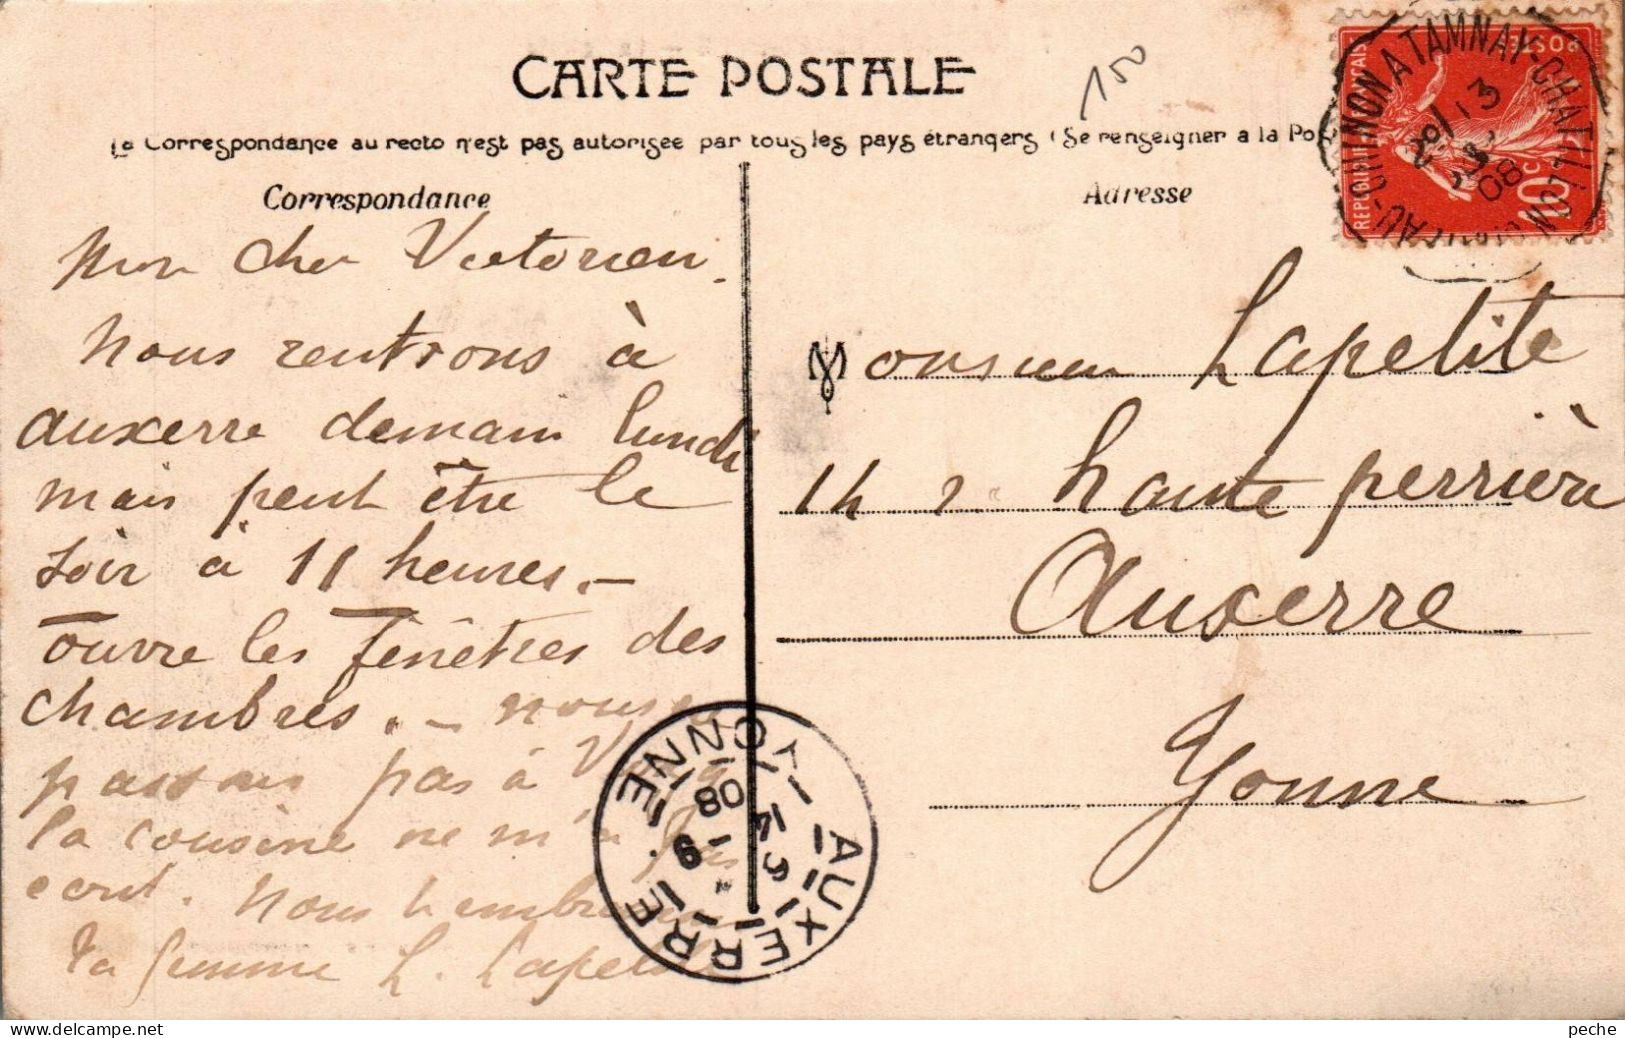 CARTE POSTALE
100
La Correspondance au recto n'est pas autorisée par tous les pays étrangers (Se renseigner à la Pos
Correspondance
Mon cher Victorien.
Nous rentrons à
auxerre demain lundi
mais peut être le
soir à 11 heures.–
ouvre les fenêtres des
chambres.– nous
passons pas à
la cousine ne m'a pas
ecrit. Nous t'embrassons
ta femme L. Lapetite
Adresse
Monsieur Lapetite
14 r haute perrière
Auxerre
Yonne
CHATEAU-CHINON A TAMNAY-CHATILLON
13
08
REPUBLIQUE FRANÇAISE
POSTES
10c
AUXERRE
YONNE
14
9
08
peche